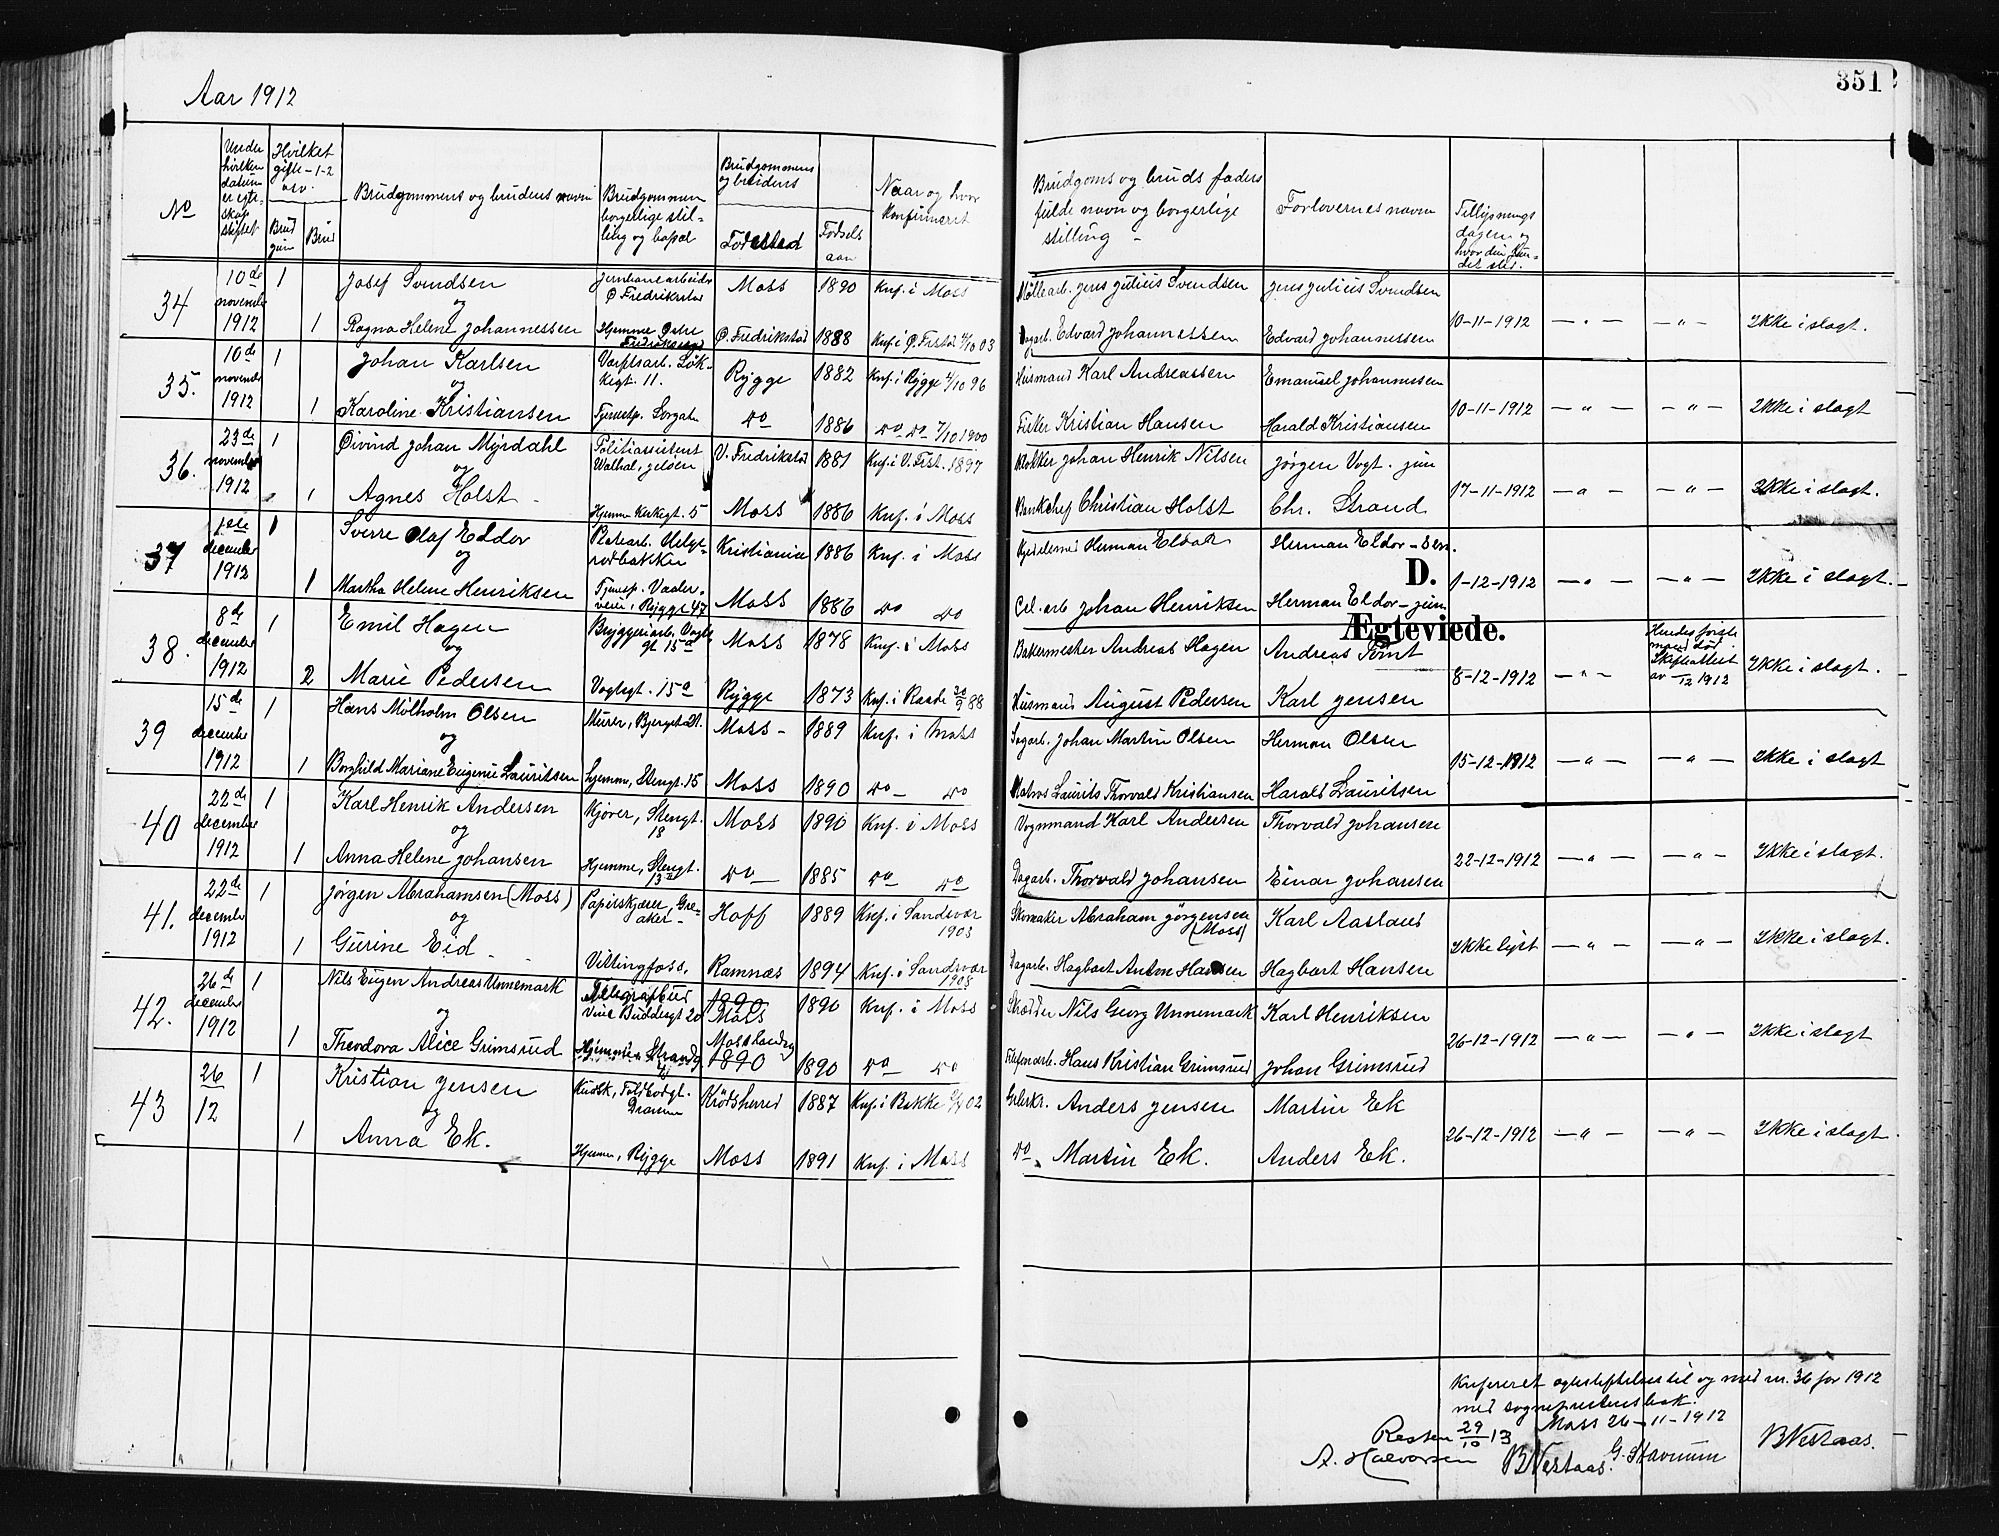 351
Aar 1912
No
Under hvilken datum er egteskap stiftet
Hvilket gifte – 1-2 osv.
Brudgom
Brud
Brudgommens og brudens navn
Brudgommens borgerlige stilling og bopæl
Brudgommens og brudens
Fødested
Fødselsaar
Naar og hvor konfirmeret
Brudgoms og bruds faders fulde navn og borgerlige stilling –
Forlovernes navn
Tillysningsdagen og hvor den fandt sted.
D.
Ægteviede.
34
10de november 1912
1
Josef Svendsen
Jernbanearbeider Ø Fredrikstad
Moss
1890
Knf. i Moss
Møllearb. Jens Julius Svendsen
Jens Julius Svendsen
og
1
Ragna Helene Johannessen
Hjemme Østre Fredrikstad
Ø. Fredrikstad
1888
Knf. i Ø. Frstad 4/10 03
Dagarb. Edvard Johannessen
Edvard Johannessen
10-11-1912
– " –
– " –
Ikke i slægt.
35.
10de november 1912
1
Johan Karlsen
Værftsarb. Løkkegt. 11.
Rygge
1882
Knf. i Rygge 4/10 96
Husmand Karl Andreassen
Emanuel Johannessen
og
1
Karoline Kristiansen
Tjenestp. Sorgat.
do
1886
do do 7/10 1900
Fisker Kristian Hansen
Harald Kristiansen
10-11-1912
– " –
– " –
Ikke i slægt
36.
23de november 1912
1
Øivind Johan Myrdahl
Politiassistent
V. Fredrikstad
1881
Knf. i V. Frst. 1897
Bokker Johan Henrik Nilsen
Jørgen Vogt. jun
og
1
Agnes Holst
Hjemme Kirkegt. 5
Moss
1886
Knf. i Moss
Bankchef Christian Holst
Chr. Strand
17-11-1912
– " –
– " –
Ikke i slægt.
37
1ste december 1912
1
Sverre Olaf Eldor
Platearb. Helgerødbakken
Kristiania
1886
Knf. i Moss
Herman Eldor
Herman Eldor – sen.
og
1
Martha Helene Henriksen
Tjenestp. Vaalerveien, Rygge 47
Moss
1886
do do
Cel. arb Johan Henriksen
Herman Eldor – jun
1-12-1912
– " –
– " –
Ikke i slægt.
38.
8de december 1912
1
Emil Hagen
Bryggeriarb. Vogtsgt 15a
Moss
1878
Knf. i Moss
Bakermester Andreas Hagen
Andreas Tømt
og
2
Marie Pedersen
Vogtsgt. 15a
Rygge
1873
Knf. i Raade 30/9 88
Husmand August Pedersen
Karl Jensen
8-12-1912
– " –
Hendes første mand død. Skifteattest av –/12 1912
Ikke i slægt.
39
15de december 1912
1
Hans Mølholm Olsen
Murer, Bjerget 21.
Moss –
1889
Knf. i Moss
Sagarb. Johan Martin Olsen
Herman Olsen
og
1
Bornhild Mariane Eugenie Lauritsen
hjemme, Stengt. 15
Moss
1890
do – do
Matros Laurits Thorvald Kristiansen
Harald Lauritsen
15-12-1912
– " –
– " –
Ikke i slægt
40
22de december 1912
1
Karl Henrik Andersen
Kjører, Stengt. 18
Moss
1890
Knf. i Moss
Vognmand Karl Andersen
Thorvald Johansen
og
1
Anna Helene Johansen
Hjemme, Stengt. 13
do
1885
do do
Dagarb. Thorvald Johansen
Einar Johansen
22-12-1912
– " –
– " –
Ikke i slægt.
41.
22de december 1912
1
Jørgen Abrahamsen (Moss)
Papirskjærer, Greaker –
Hoff
1889
Knf. i Sandsvær 1903
Skomaker Abraham Jørgensen (Moss)
Karl Aaslaus
og
1
Gurine Eid
Vittingfoss,
Ramnæs
1894
Knf. i Sandsvær 1908
Dagarb. Hagbart Anton Hansen
Hagbart Hansen
Ikke lyst
– " –
– " –
Ikke i slægt.
42.
26de december 1912
1
Nils Eugen Andreas Unnemark
Telegrafbud Vine Buddesgt 20
1890 Moss
1890
Knf. i Moss
Skrædder Nils Georg Unnemark
Karl Henriksen
og
1
Theodora Alice Grimsrud
Hjemme Strandg. 4
Moss landsg 1890
1890
do do
Telefonarb. Hans Kristian Grimsrud
Johan Grimsrud
26-12-1912
– " –
– " –
Ikke i slægt
43
26/12
1
Kristian Jensen
Kusk, Toldbodgt. Drammen
Krødsherred
1887
Anders Jensen
Martin Ek
og
1
Anna Ek.
Hjemme, Rygge
Moss
1891
Knf. i Moss
do Martin Ek.
Anders Ek.
26-12-1912
– " –
– " –
Ikke i slægt
Knfereret egteskaptelser til og med nr. 36 for 1912
med sogneprestens bok.
Moss 26-11-1912
Resten 29/10 13
A. Halvorsen
B Nestaas.
G. Stavnum
B Nestaas.